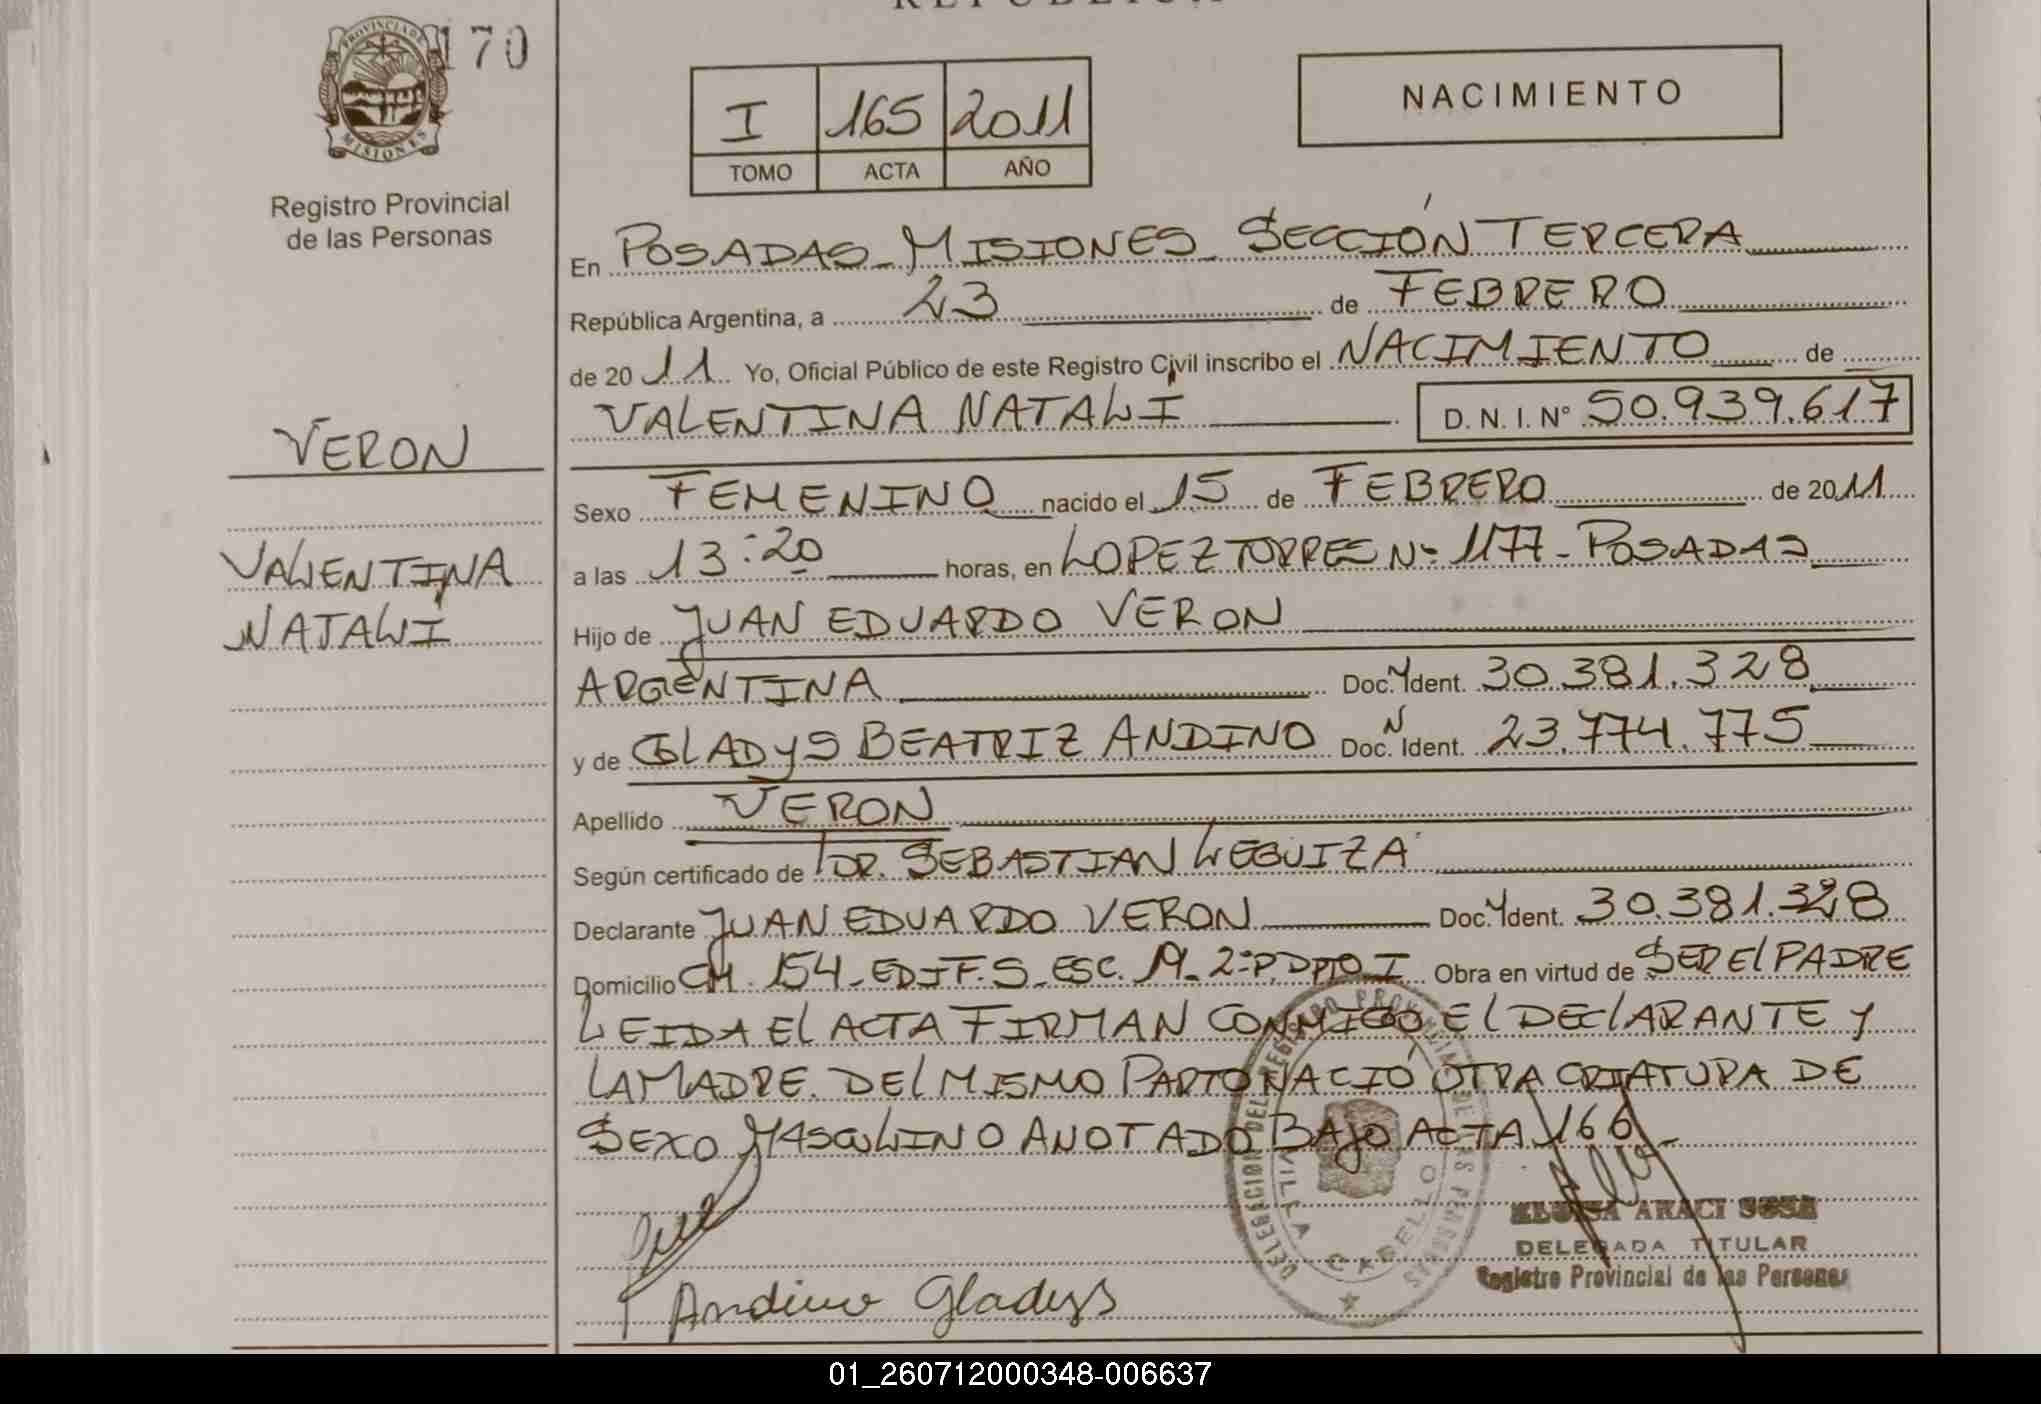 REPUBLICA
170
PROVINCIA DE
MISIONES
Registro Provincial
de las Personas
I 165 2011
TOMO ACTA AÑO
NACIMIENTO
En POSADAS - MISIONES - SECCIÓN TERCERA
República Argentina, a 23 de FEBRERO
de 2011 Yo, Oficial Público de este Registro Civil inscribo el NACIMIENTO de
VALENTINA NATALI D. N. I. N° 50.939.617
VERON
VALENTINA
NATALI
Sexo FEMENINO nacido el 15 de FEBRERO de 2011
a las 13:20 horas, en LOPEZ TORRES N° 1177 - POSADAS
Hijo de JUAN EDUARDO VERON
ARGENTINA Doc. Ident. 30.381.328
y de GLADYS BEATRIZ ANDINO Doc. Ident. 23.774.775
Apellido VERON
Según certificado de DR. SEBASTIAN LEGUIZA
Declarante JUAN EDUARDO VERON Doc. Ident. 30.381.328
Domicilio CH. 154 - EDIF. S - ESC. 2° P. DPTO I Obra en virtud de SER El PADRE
LEIDA El ACTA FIRMAN CONMIGO El DEClARANTE y
LA MADRE. DEl MISMO PARTO NACIÓ OTRA CRIATURA DE
SEXO MASCULINO ANOTADO BAJO ACTA 166 -
DELEGACION DEL REGISTRO PROVINCIAL DE LAS PERSONAS
VILLA CABELLO
ARACI SOSA
DELEGADA TITULAR
Registro Provincial de las Personas
Andino Gladys
01_260712000348-006637